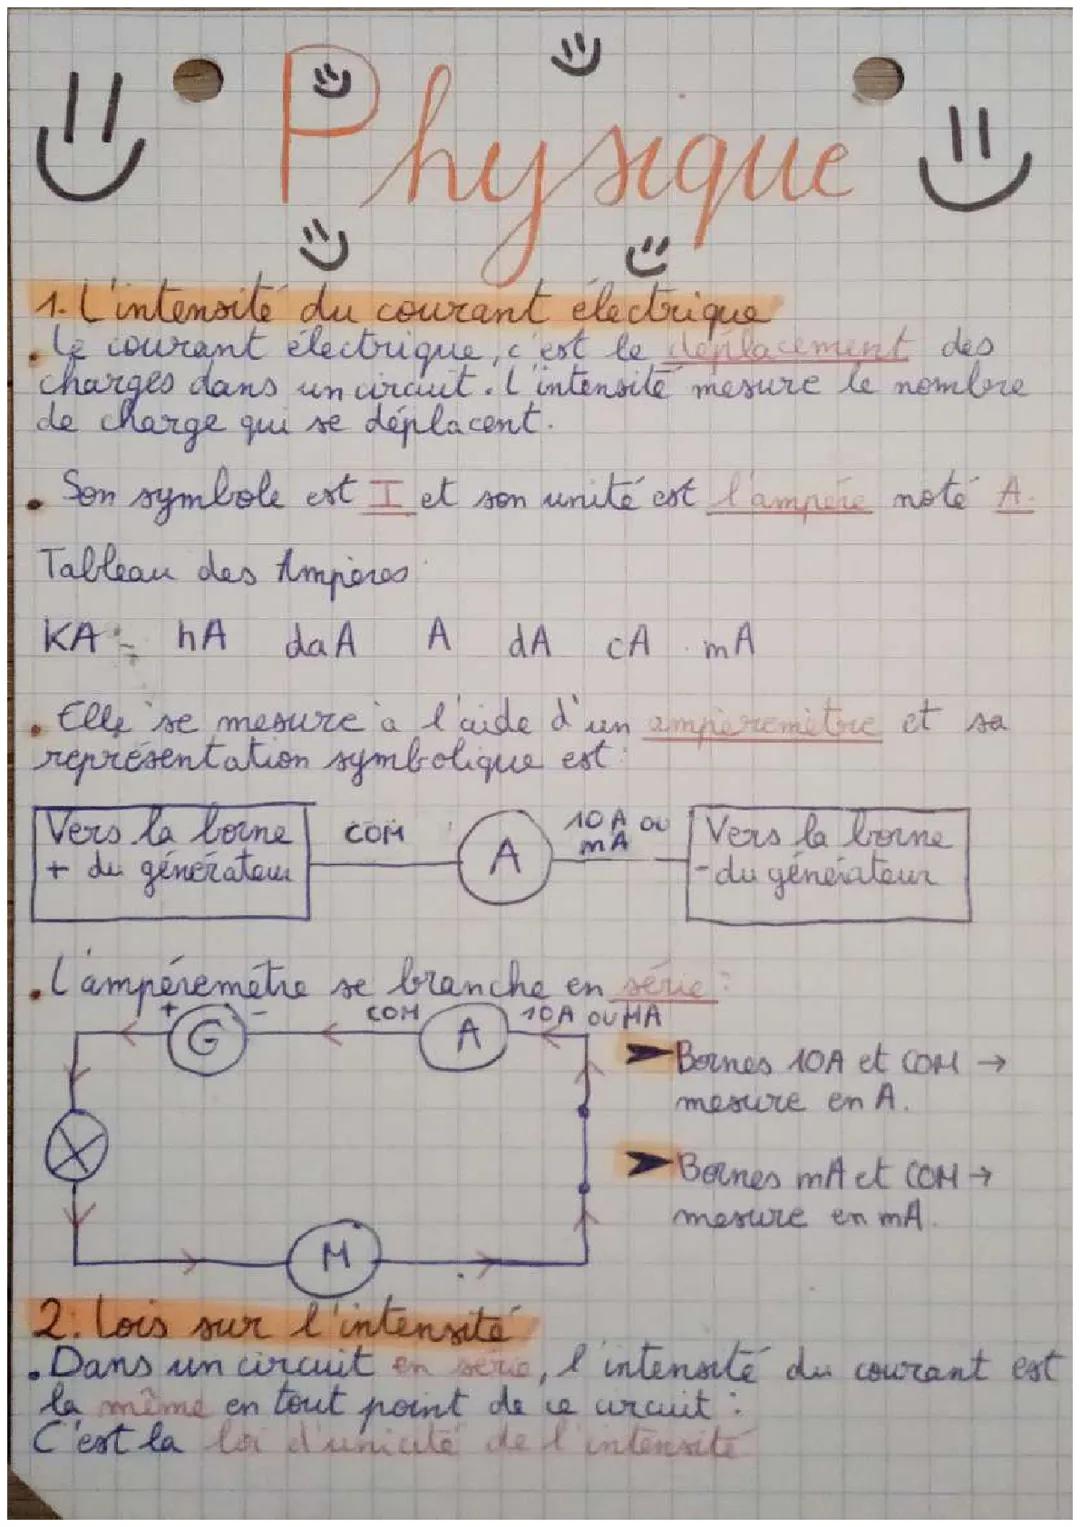 Physique
1. L'intensité du courant électrique
• Le courant électrique, c'est le déplacement des
charges dans un circuit. L'intensité mesure le nombre
de charge qui se déplacent.
• Son symbole est I et son unité est l'ampère noté A.
Tableau des Ampères
KA hA daA A dA cA mA
• Elle se mesure à l'aide d'un ampèremètre et sa
représentation symbolique est :
Vers la borne
+ du générateur
COM
A
10A ou
mA
Vers la borne
- du générateur
• L'ampéremétre se branche en série :
+ G - COM A 10A OU MA
M
Bornes 10A et COM →
mesure en A.
Bornes mA et COM →
mesure en mA.
2. Lois sur l'intensité
• Dans un circuit en série, l'intensité du courant est
la même en tout point de ce circuit :
C'est la loi d'unicité de l'intensité